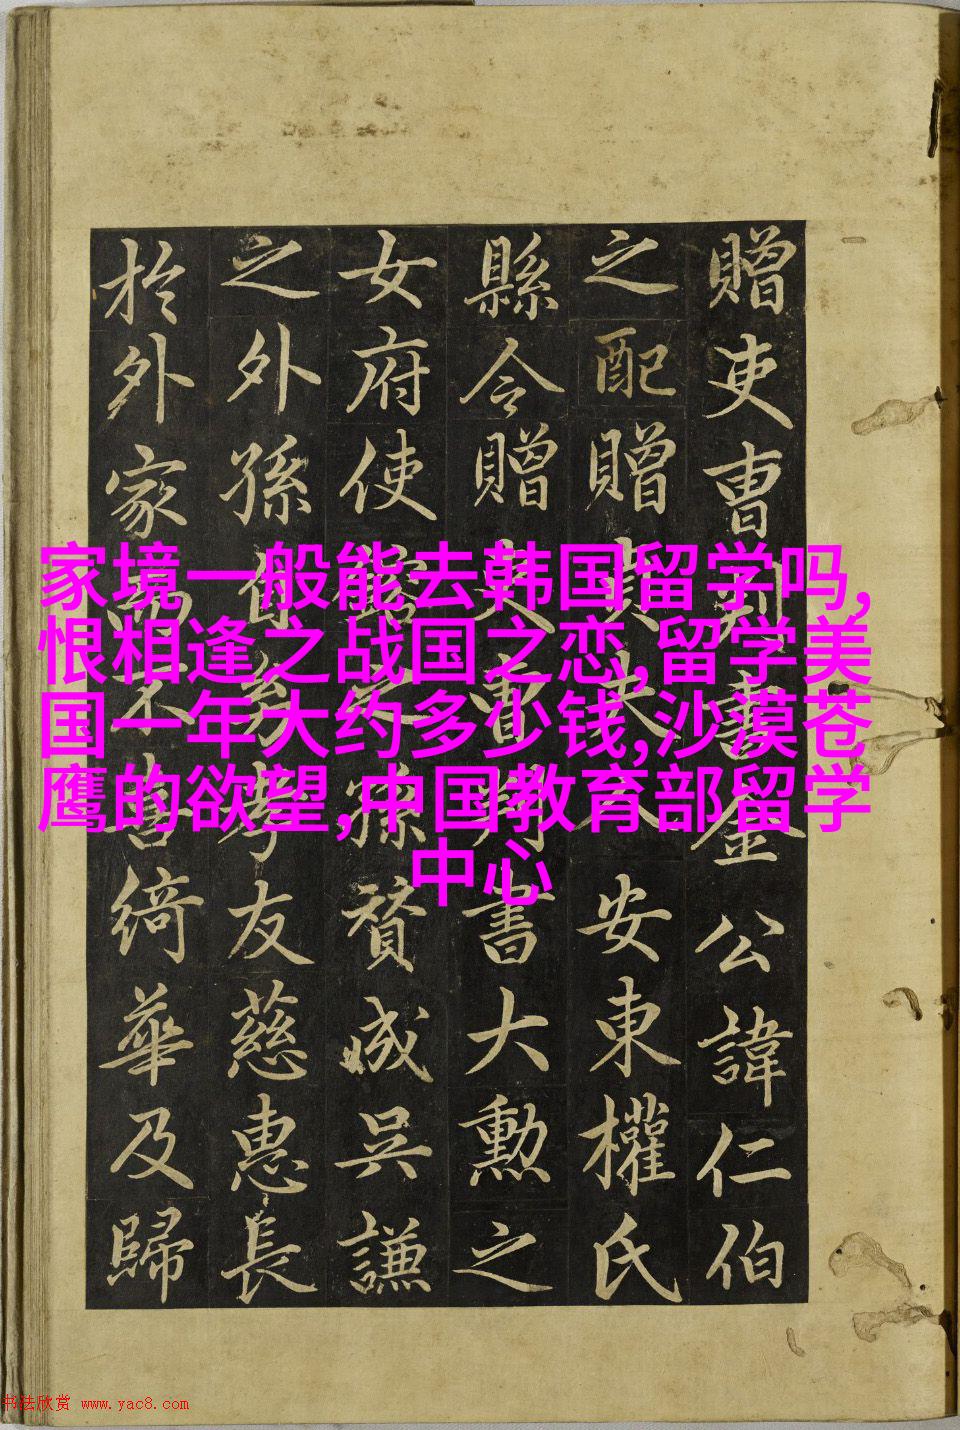 贈吏曹判書金公諱仁伯
之配贈夫人安東權氏
縣令贈吏曹判書大勳之
女府使之孫贊成吳謙
之外孫自幼孝友慈惠長
於外家不喜綺華及歸
家境一般能去韩国留学吗,
恨相逢之战国之恋,留学美
国一年大约多少钱,沙漠苍
鹰的欲望,中国教育部留学
中心
书法欣赏 www.yac8.com